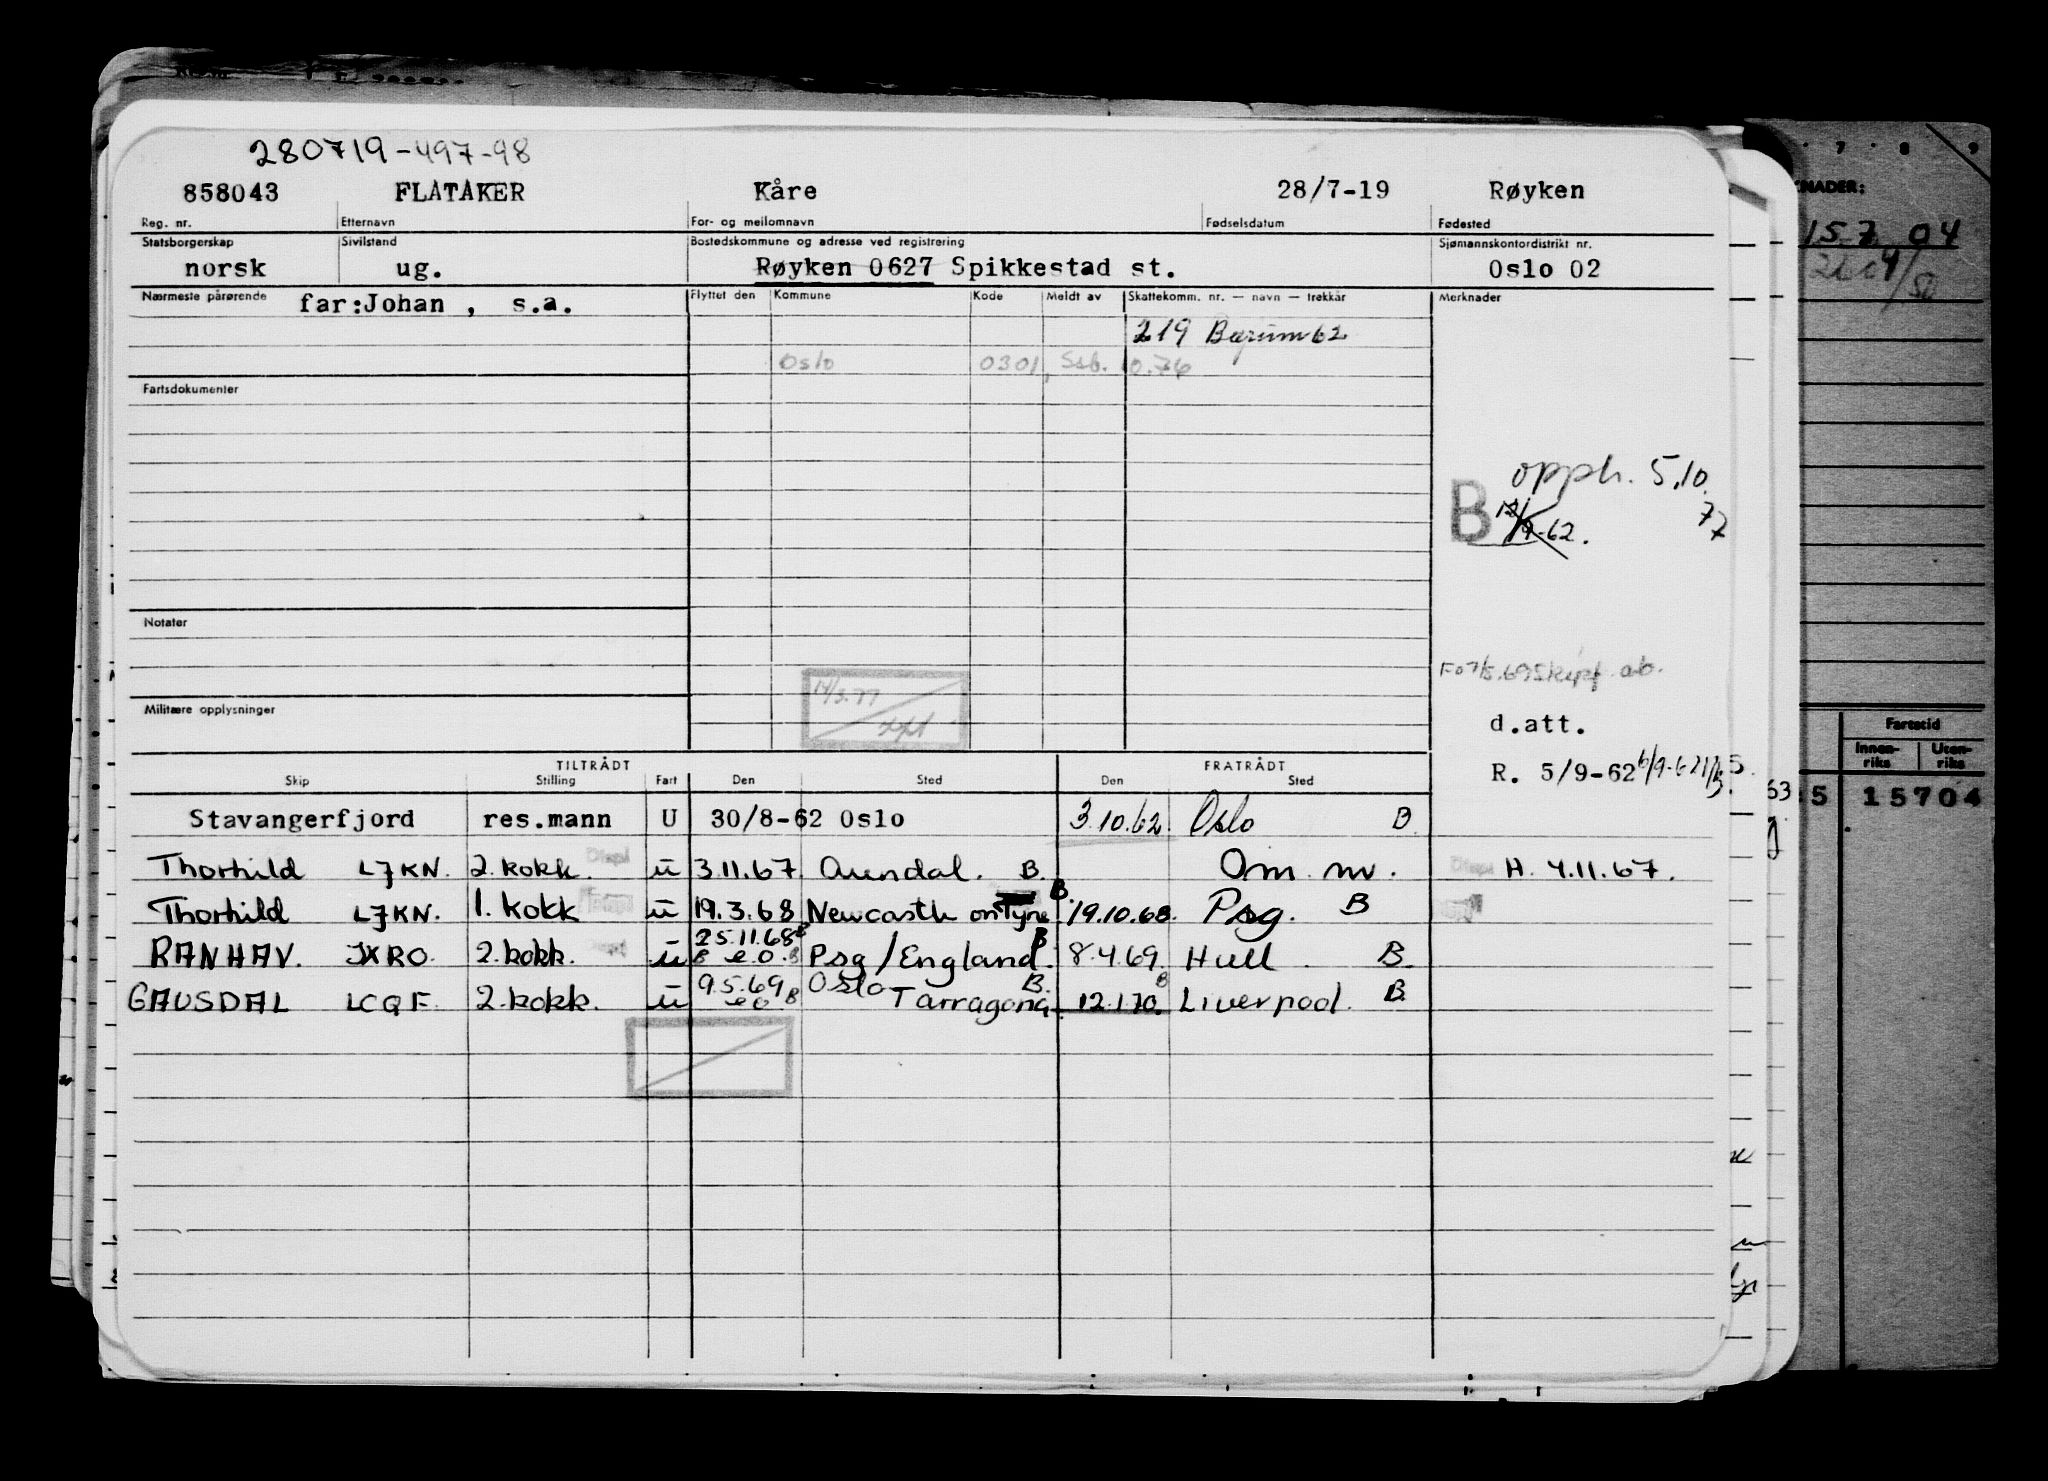 280719-497-98
858043 FLATAKER Kåre 28/7-19 Røyken
Reg. nr. Etternavn For- og mellomnavn Fødselsdatum Fødested
Statsborgerskap Sivilstand Bostedskommune og adresse ved registrering Sjømannskontordistrikt nr.
norsk ug. Røyken 0627 Spikkestad st. Oslo 02
Nærmeste pårørende far:Johan , s.a. Flyttet den Kommune Kode Meldt av Skattekomm. nr. — navn — trekkår Merknader
219 Bærum 62
Oslo 0301, Ssb. 10.76
Fartsdokumenter
opph. 5.10.77
B 12/9-62.
Notater
14/3.77
Militære opplysninger
d.att.
R. 5/9-62
TILTRÅDT FRATRÅDT
Skip Stilling Fart Den Sted Den Sted
Stavangerfjord res.mann U 30/8-62 Oslo 3.10.62. Oslo B
Thorhild LJKN. 2. kokk. u 3.11.67. Arendal. B. Om. mv. H. 4.11.67.
Thorhild LJKN. 1. kokk u 19.3.68 Newcastle on Tyne B. 19.10.68. Psg. B
RANHAV. JXRO. 2. kokk. u 25.11.68 B e.o. B Psg/England. B 8.4.69. Hull. B.
GAUSDAL LCQF. 2. kokk. u 9.5.69 e o B Oslo B. Tarragona. 12.1.70. B Liverpool. B.
KNADER:
7 8 9
15.7.04
Fartstid
Innen-riks Uten-riks
5 15704
63